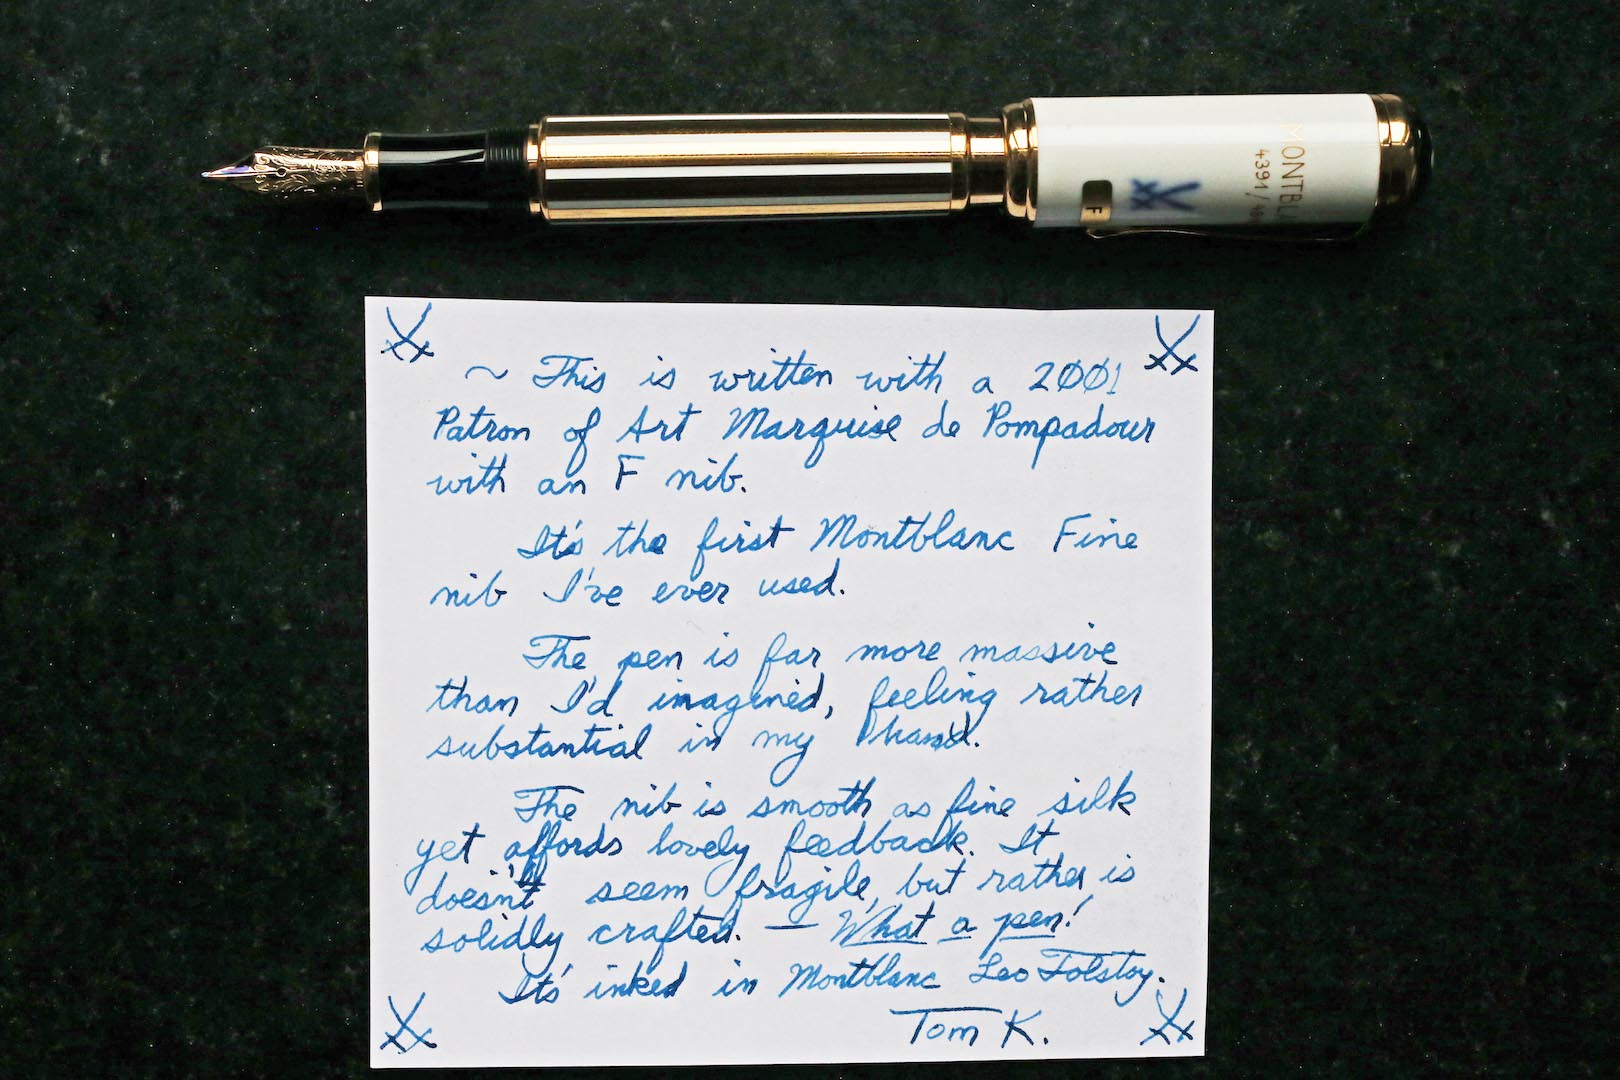 MONTBL
4391/
F
~ This is written with a 2001
Patron of Art Marquise de Pompadour
with an F nib.
It's the first Montblanc Fine
nib I've ever used.
The pen is far more massive
than I'd imagined, feeling rather
substantial in my hand.
The nib is smooth as fine silk
yet affords lovely feedback. It
doesn't seem fragile, but rather is
solidly crafted. — What a pen!
It's inked in Montblanc Leo Tolstoy.
Tom K.